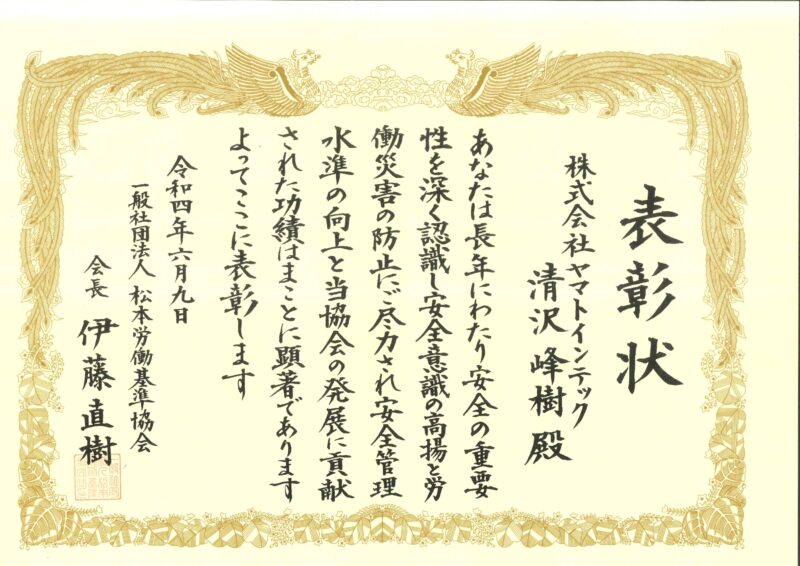 表彰状
株式会社ヤマトインテック
清沢峰樹殿
あなたは長年にわたり安全の重要
性を深く認識し安全意識の高揚と労
働災害の防止にご尽力され安全管理
水準の向上と当協会の発展に貢献
された功績はまことに顕著であります
よってここに表彰します
令和四年六月九日
一般社団法人 松本労働基準協会
会長 伊藤直樹